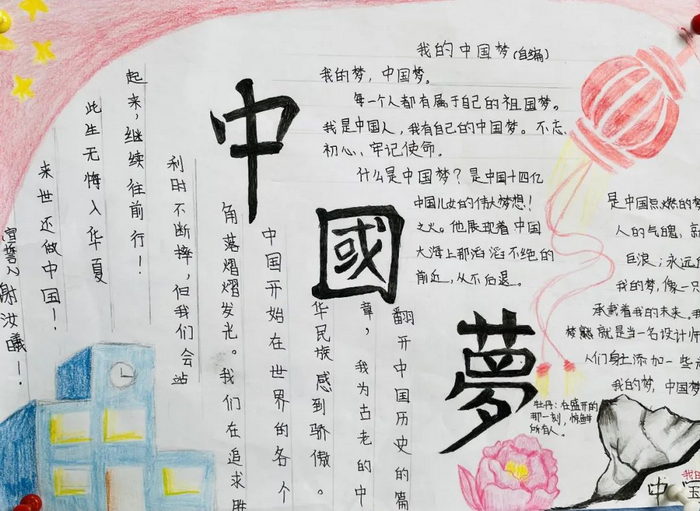 我的中国梦(自编)
我的梦，中国梦。
每一个人都有属于自己的祖国梦。
我是中国人，我有自己的中国梦。不忘
初心、牢记使命。
什么是中国梦？是中国十四亿
中国儿女的伟大梦想！
之火。他展现着中国
大海上那滔滔不绝的
前近，从不后退。
中國夢
是中国思燃的梦
人的气魄，
巨浪；永远
我的梦，像一只
承载着我的未来。我
就是当一名设计师
人们身上添加一些
我的梦，中国梦
牡丹：在盛开的
那一刻，惊艳
所有人。
翻开中国历史的篇
章，我为古老的中
华民族感到骄傲。
中国开始在世界的各个
角落熠熠发光。我们在追求胜
利时不断摔，但我们会站
起来，继续往前行！
此生无悔入华夏
来世还做中国！
宣誓人谢汝曦！
中